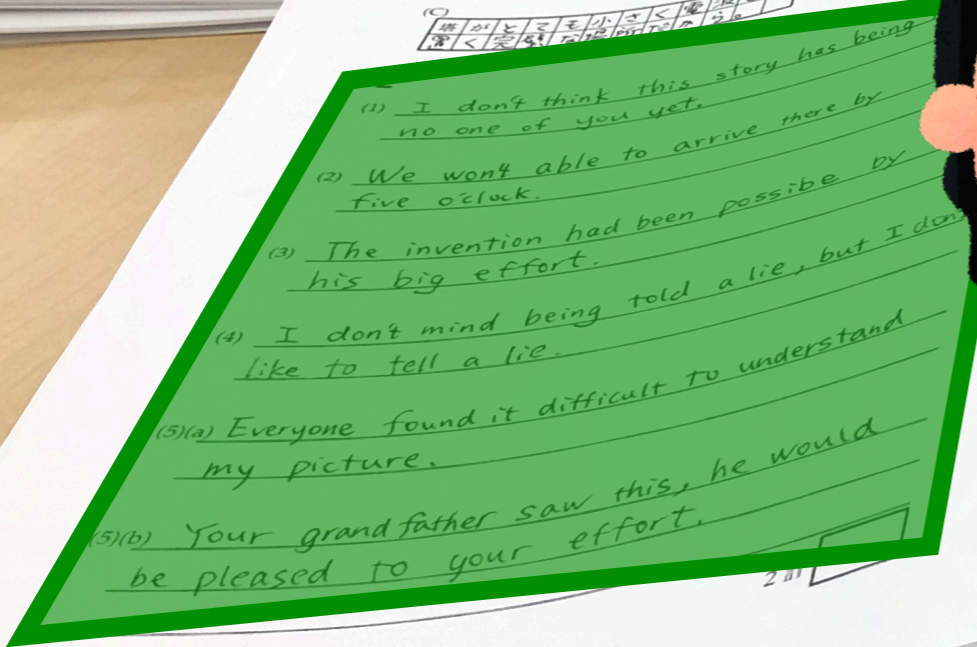 (C)
塔がとても小さく電
(1) I don't think this story has being
no one of you yet.
(2) We won't able to arrive there by
five o'clock.
(3) The invention had been possibe by
his big effort.
(4) I don't mind being told a lie, but I don
like to tell a lie.
(5)(a) Everyone found it difficult to understand
my picture.
(5)(b) Your grandfather saw this, he would
be pleased to your effort.